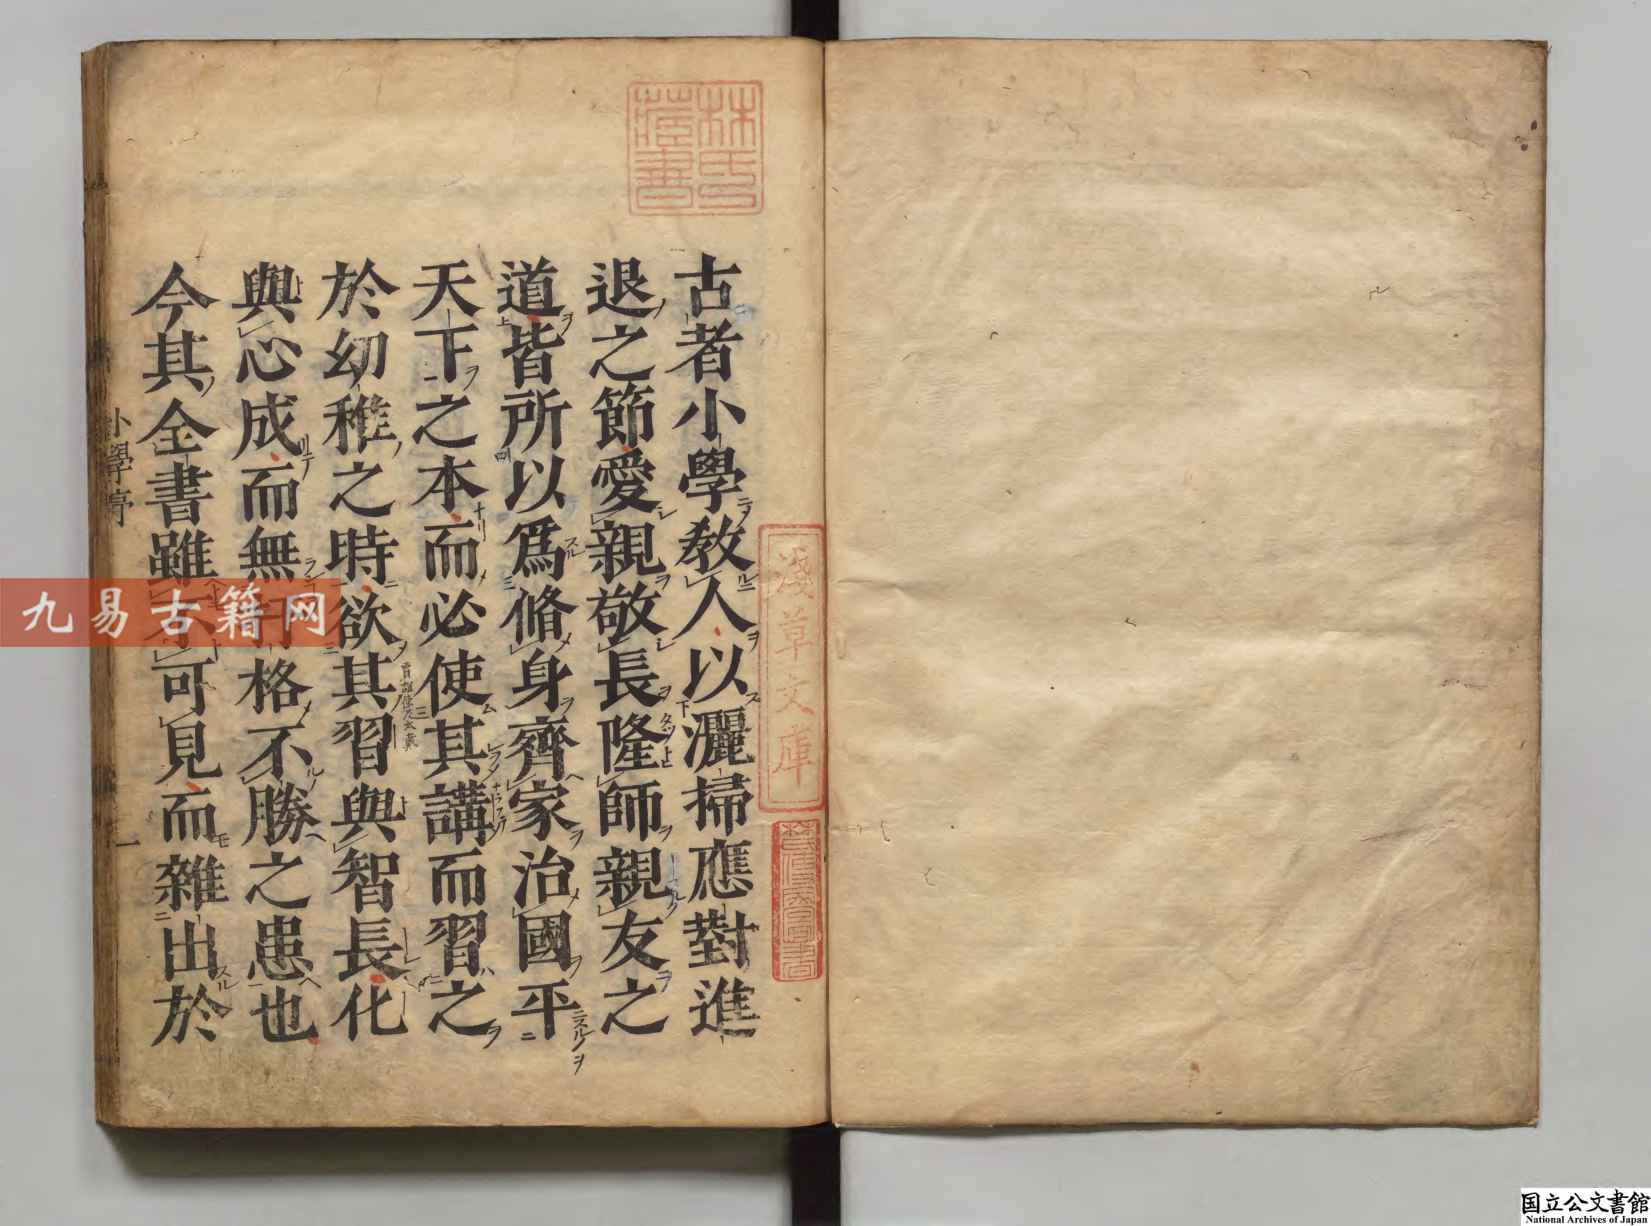 古者小學教人以灑掃應對進
退之節愛親敬長隆師親友之
道皆所以爲脩身齊家治國平
天下之本而必使其講而習之
於幼稚之時欲其習與智長化
與心成而無格不勝之患也
今其全書雖不可見而雜出於
小學序
一
林氏藏書
淺草文庫
九易古籍网
国立公文書館
National Archives of Japan